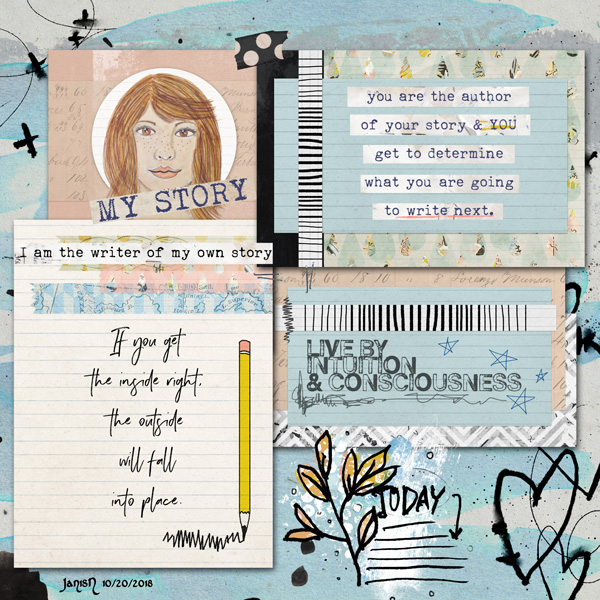 MY STORY
you are the author
of your story & YOU
get to determine
what you are going
to write next.
I am the writer of my own story
If you get
the inside right,
the outside
will fall
into place.
LIVE BY
INTUITION
& CONSCIOUSNESS
TODAY
JanisN 10/20/2018